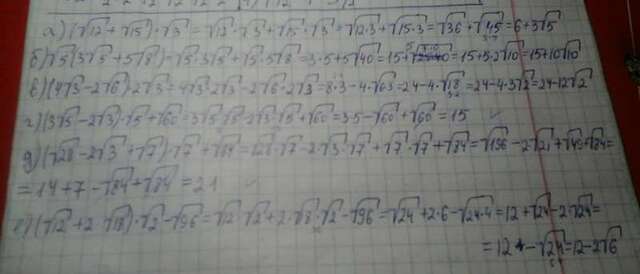 а) (√12 + √15)·√3 = √12·√3 + √15·√3 = √12·3 + √15·3 = √36 + √45 = 6 + 3√5
б) √5 (3√5 + 5√8) = √5·3√5 + √5·5√8 = 3·5 + 5√40 = 15 + 5·2√10 = 15 + 10√10
в) (4√3 - 2√6)·2√3 = 4√3·2√3 - 2√6·2√3 = 8·3 - 4·√6·3 = 24 - 4·√18 = 24 - 4·3√2 = 24 - 12√2
г) (3√5 - 2√3)·√5 + √60 = 3√5·√5 - 2√3·√5 + √60 = 3·5 - √60 + √60 = 15
д) (√28 - 2√3 + √7)·√7 + √84 = √28·√7 - 2·√3·√7 + √7·√7 + √84 = √196 - 2·√21 + √49 + √84 =
= 14 + 7 - √84 + √84 = 21
е) (√12 + 2√18)·√2 - √96 = √12·√2 + 2·√8·√2 - √96 = √24 + 2·6 - √24·4 = 12 + √24 - 2√24 =
= 12 - √24 = 12 - 2√6